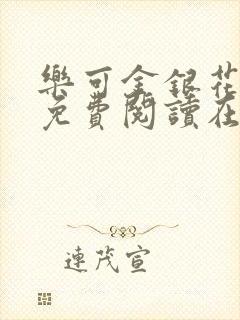 樂可金銀花
免費閱讀在
連茂宣